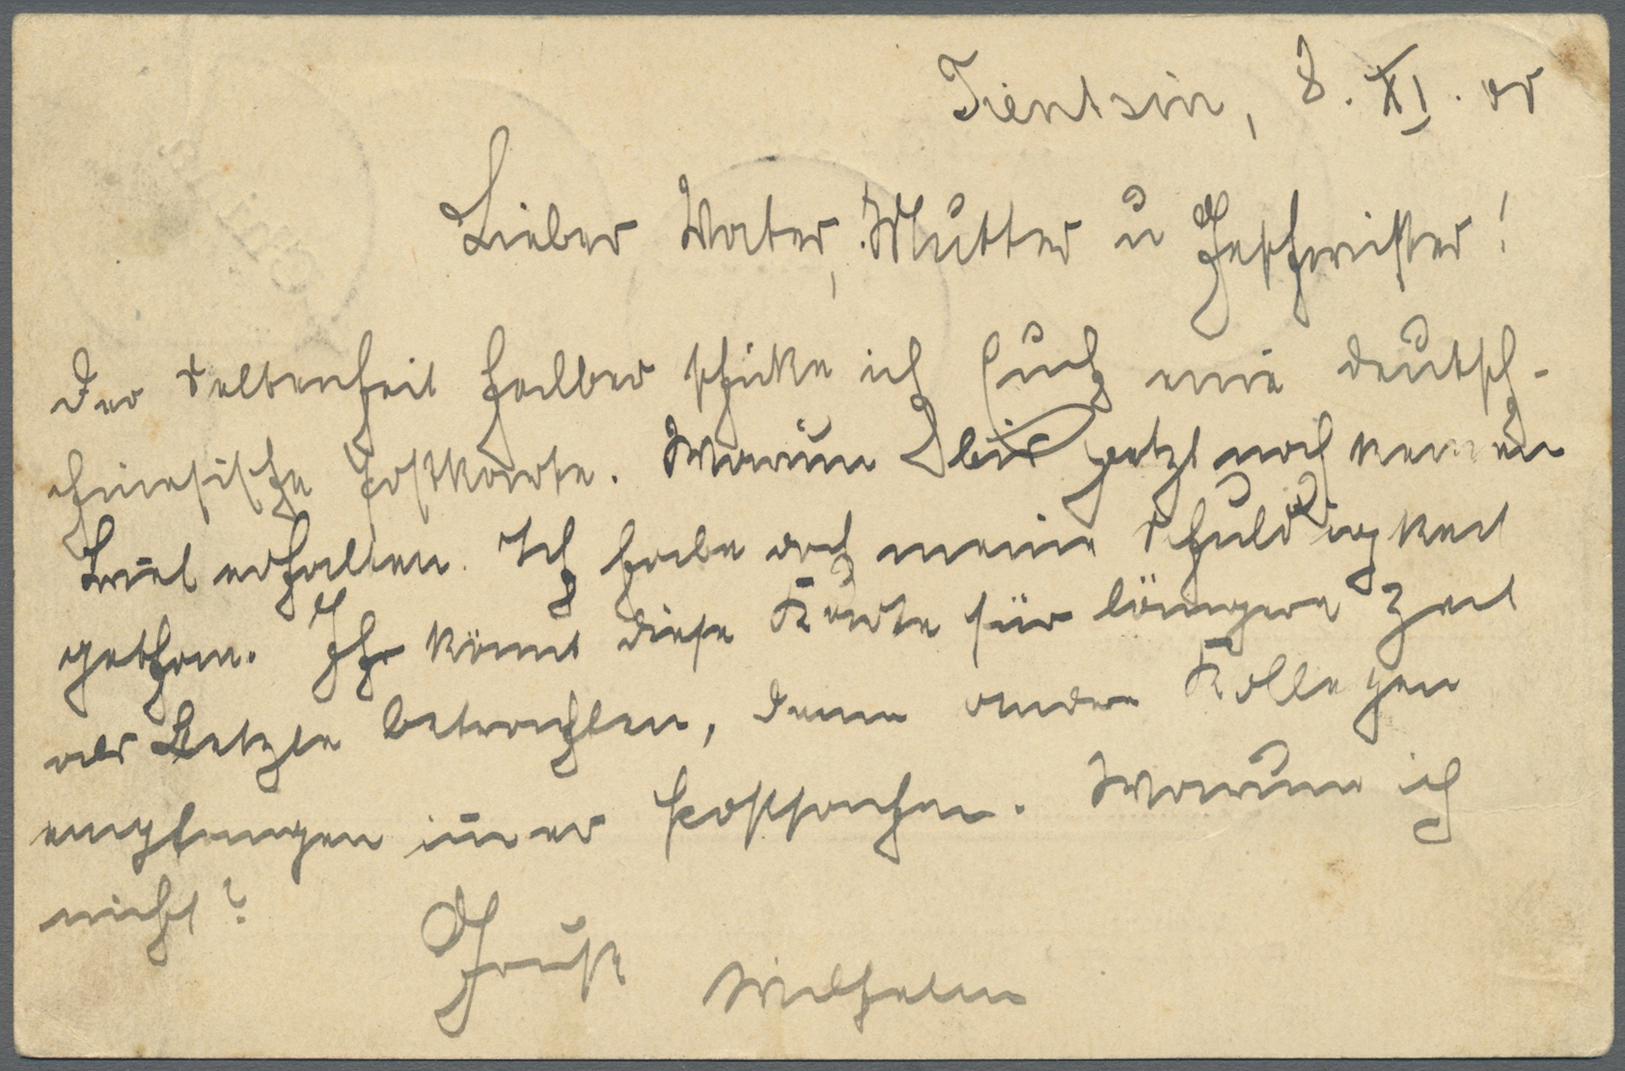 Tientsin, 8. XI. 00
Lieber Vater, Mutter u Geschwister!
Der Seltenheit halber schicke ich Euch eine deutsch-
chinesische Postkarte. Warum bis jetzt noch keinen
Brief erhalten. Ich habe doch meine Schuldigkeit
gethan. Ihr könnt diese Karte für längere Zeit
als Letzte betrachten, denn andere Kollegen
empfangen im̅er Postsachen. Warum ich
nicht?
Gruß Wilhelm